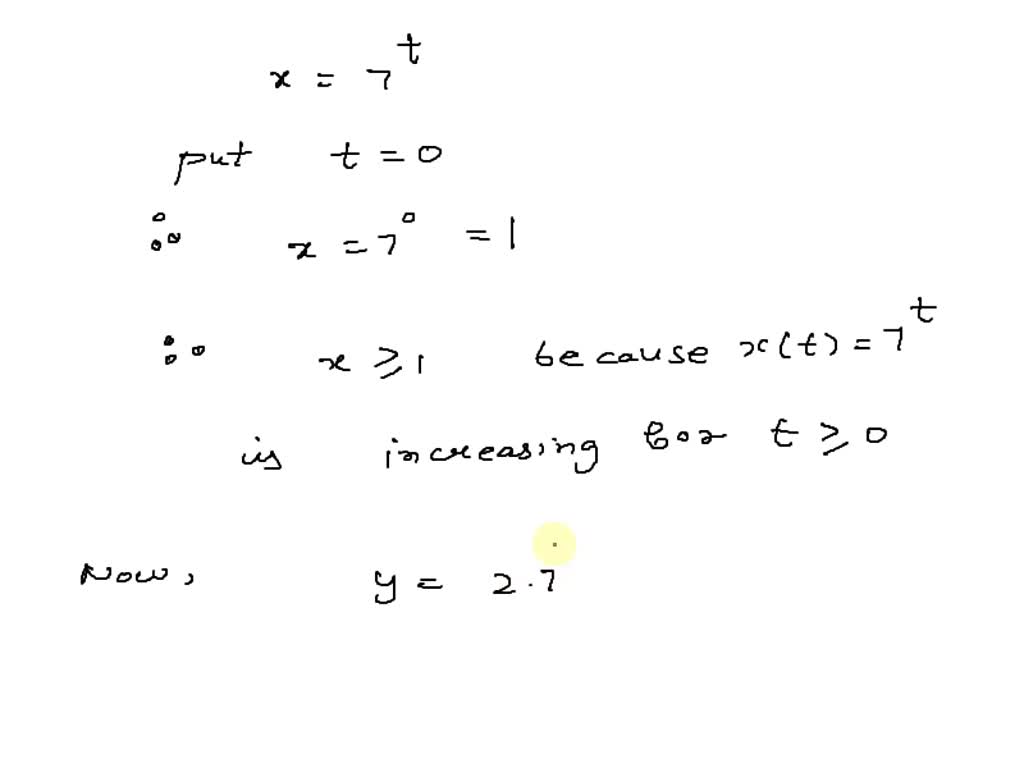 x = 7^t
put t = 0
∴ x = 7^0 = 1
∴ x ≥ 1 because x(t) = 7^t
is increasing for t ≥ 0
Now, y = 2.7